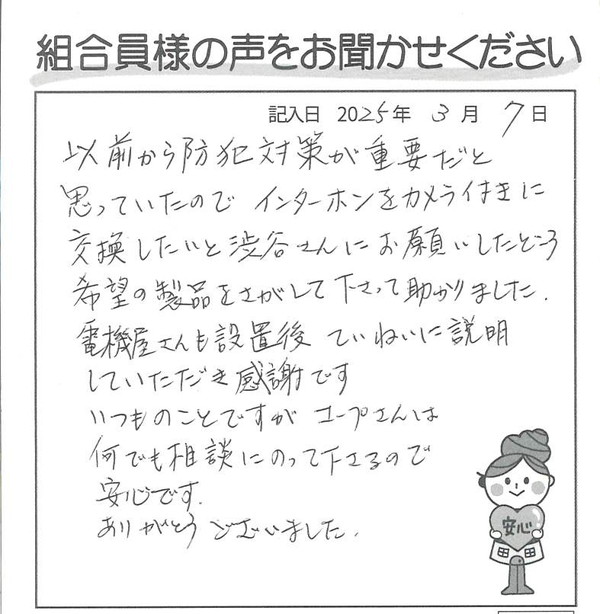 組合員様の声をお聞かせください
記入日 2025年 3月 7日
以前から防犯対策が重要だと
思っていたので インターホンをカメラ付きに
交換したいと渋谷さんにお願いしたところ
希望の製品をさがして下さって助かりました.
電機屋さんも設置後 ていねいに説明
していただき感謝です
いつものことですが コープさんは
何でも相談にのって下さるので
安心です.
ありがとうございました.
安心